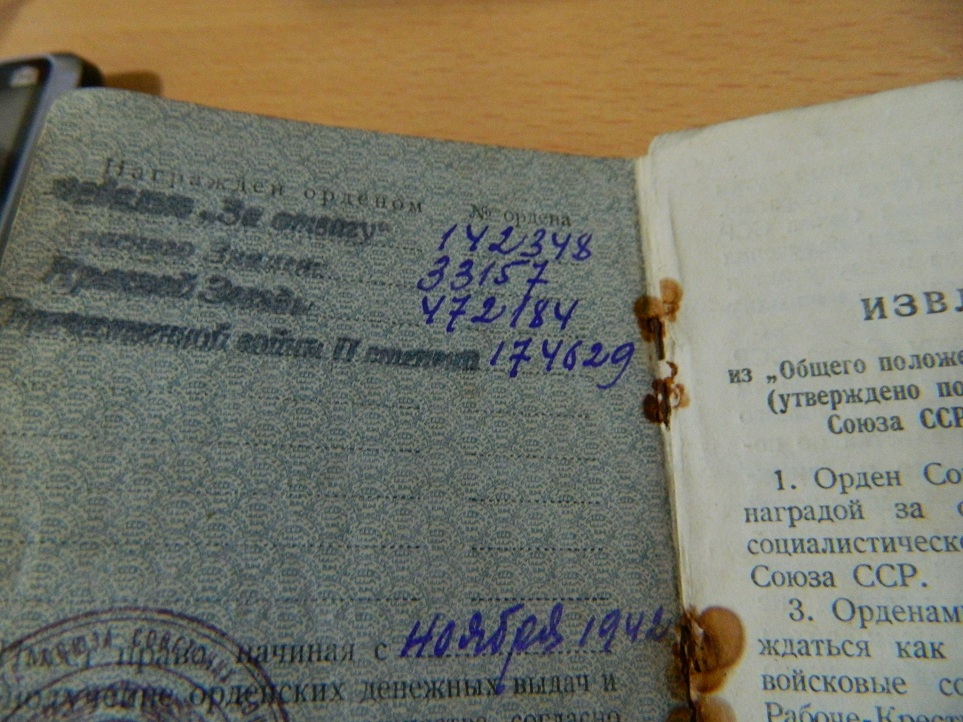 Награжден орденом № ордена
медалью „За отвагу“ 142348
Красного Знамени 33157
Красной Звезды 472184
Отечественной войны II степени 174629
право, начиная с ноября 1942
получение орденских денежных выдач и
согласно
ИЗВЛ
из „Общего положе
(утверждено по
Союза ССР
1. Орден Со
наградой за
социалистическ
Союза ССР.
3. Орденам
ждаться как
войсковые со
Рабоче-Крест